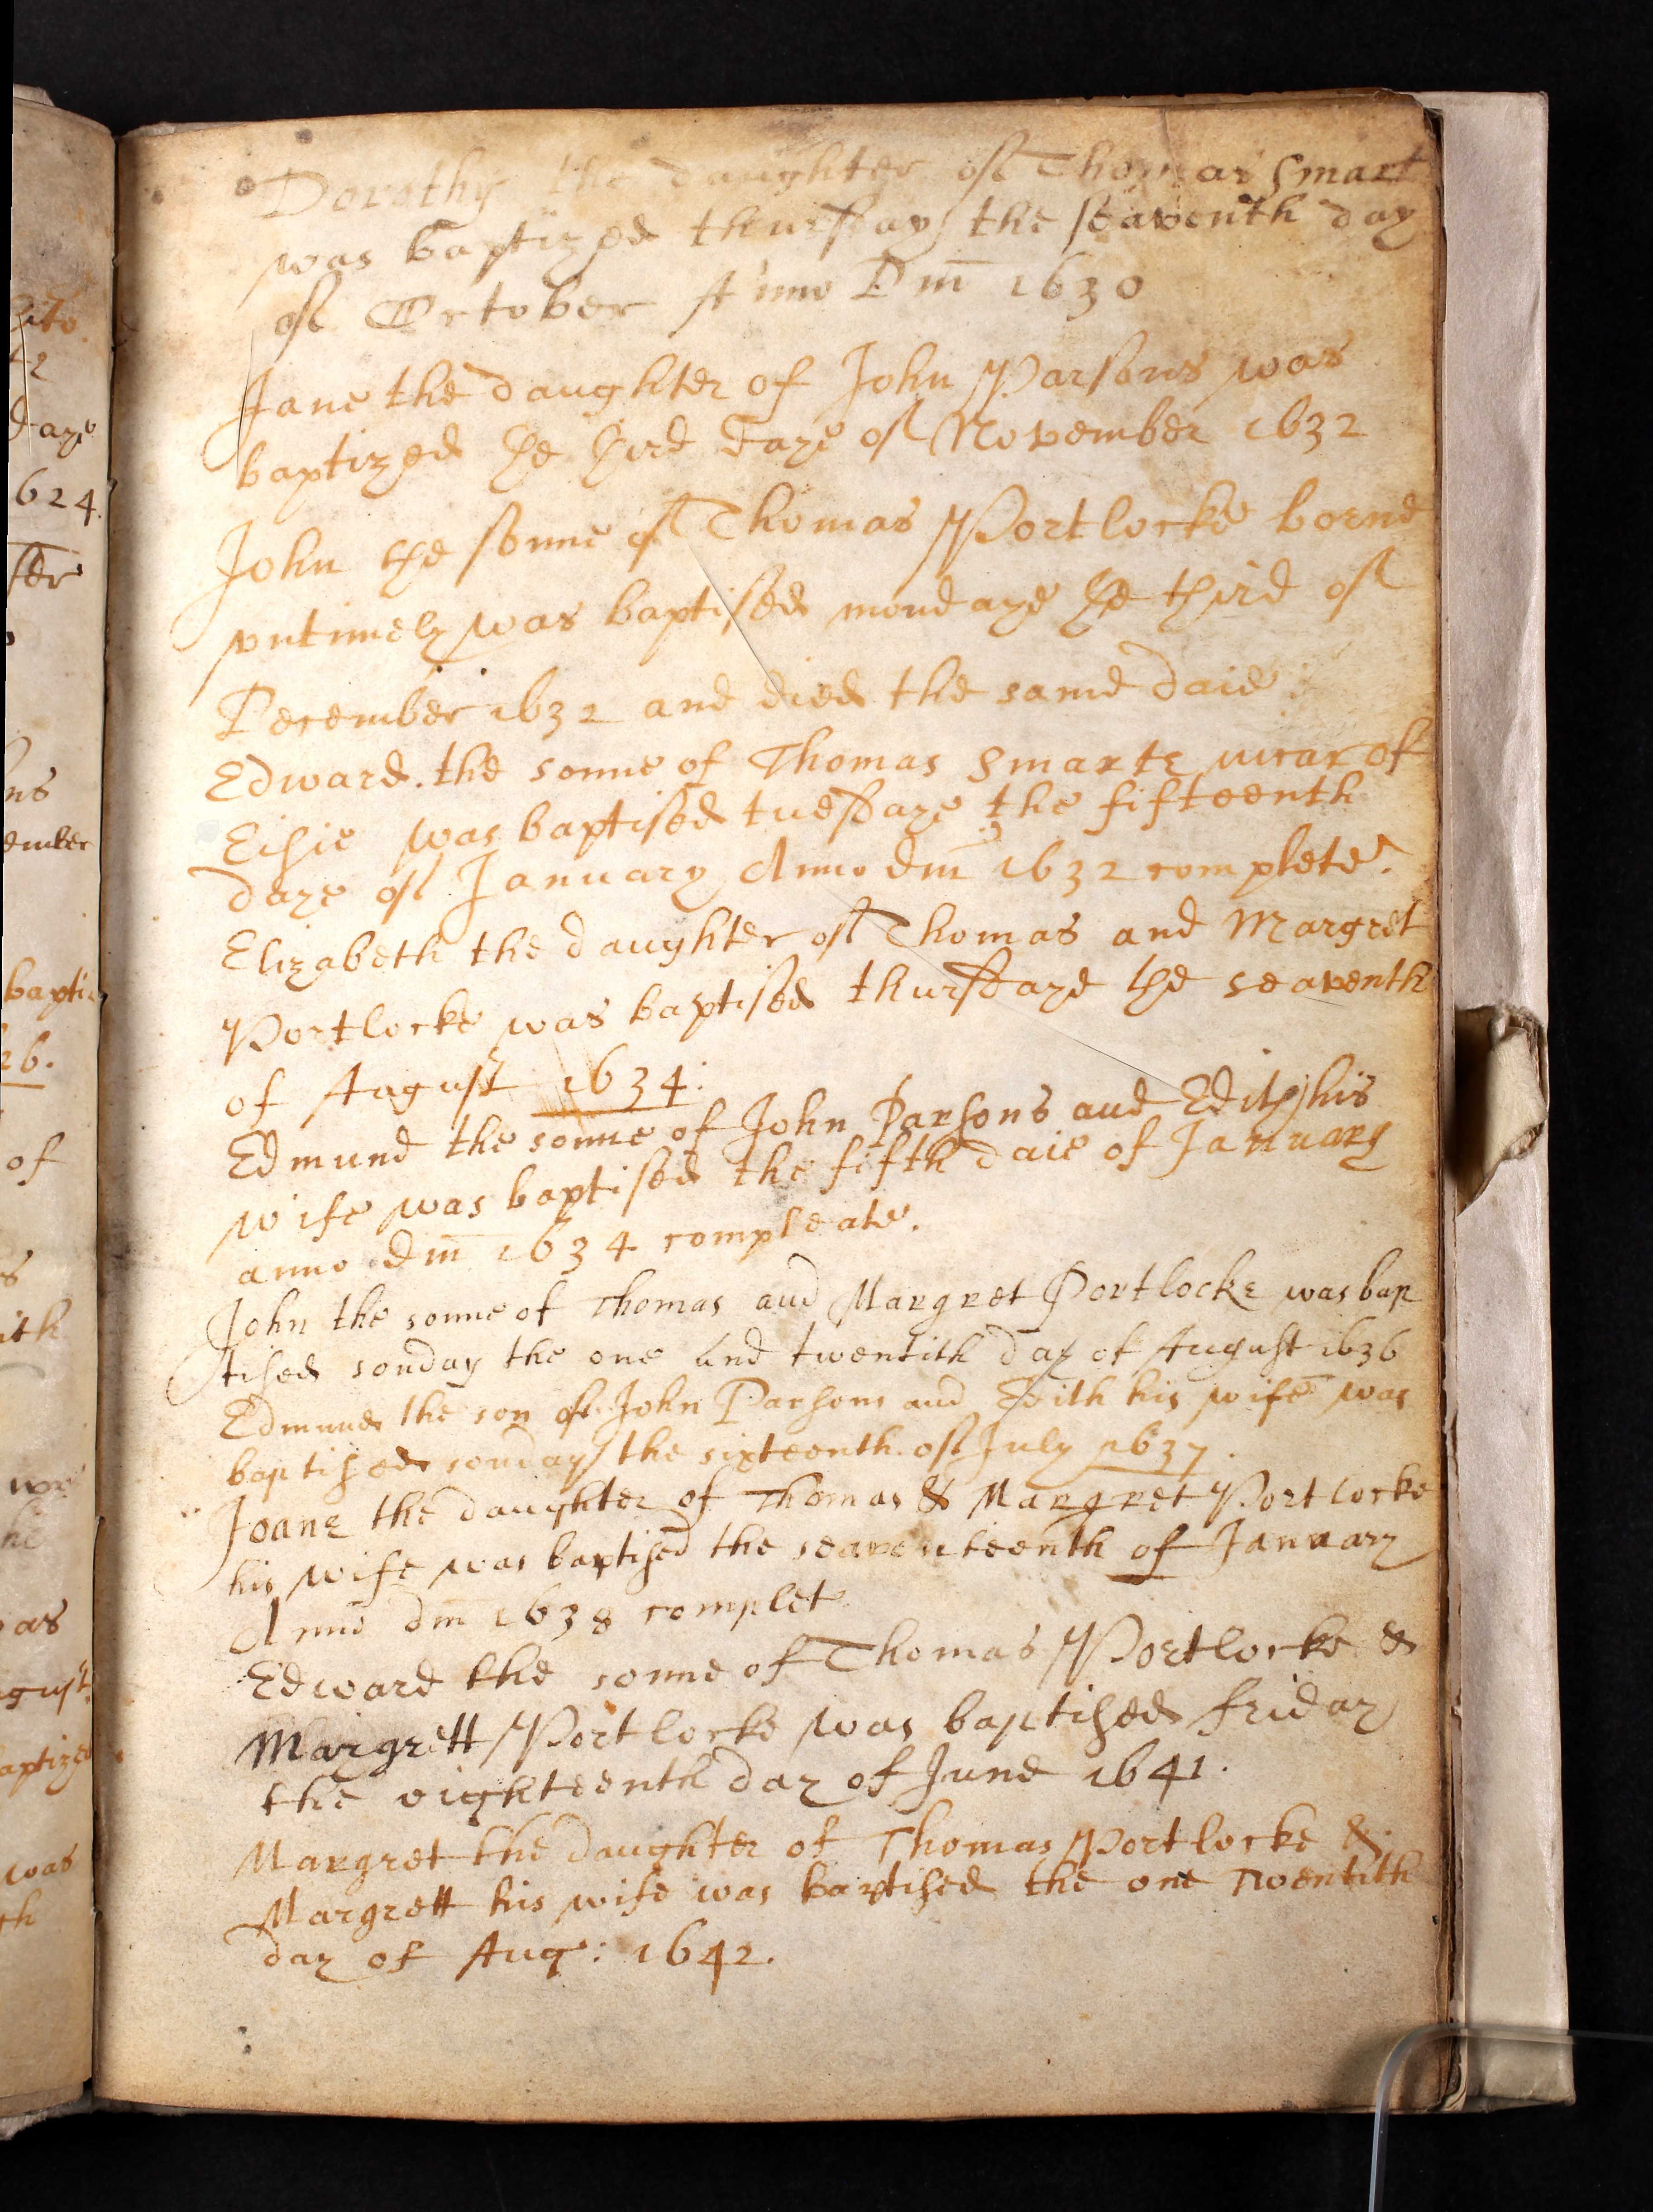 Dorothy the daughter of Thomas Smart
was baptized thursday the seaventh day
of October A'nno Dm̄ 1630
Jane the daughter of John Parsons was
baptized the third daye of November 1632
John the sonne of Thomas Portlocke borne
vntimely was baptised mondaye the third of
December 1632 and died the same daie
Edward. the sonne of Thomas Smarte vicar of
was baptised tuesdaye the fifteenth
daye of January Anno dm̄ 1632 complete.
Elizabeth the daughter of Thomas and Margret
Portlocke was baptised thursdaye the seaventh
of August 1634.
Edmund the sonne of John Parsons and Edith his
wife was baptised the fifth daie of January
anno dm̄ 1634 compleate.
John the sonne of Thomas and Margret Portlocke was bap
tised sonday the one and twentith day of August 1636
Edmund the son of John Parsons and Edith his wife was
baptised sonday the sixteenth of July 1637.
Joane the daughter of Thomas & Margret Portlocke
his wife was baptised the seaventeenth of January
Anno dm̄ 1638 complet
Edward the sonne of Thomas Portlocke &
Margrett Portlocke was baptised friday
the eighteenth day of June 1641.
Margret the daughter of Thomas Portlocke &
Margrett his wife was baptised the one Twentith
day of Aug: 1642.